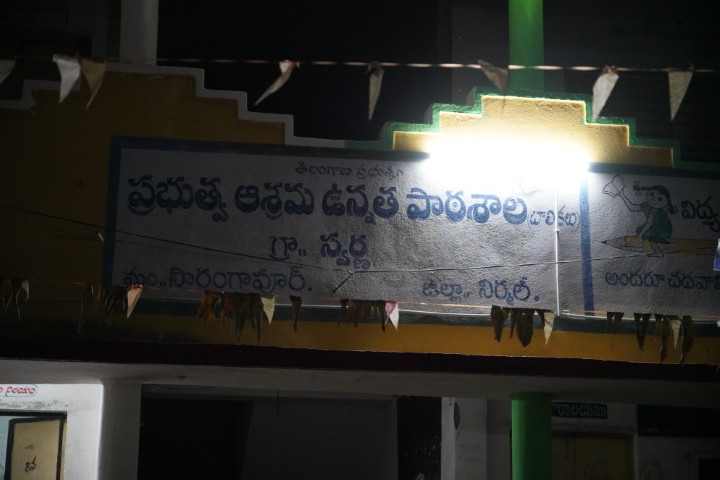 తెలంగాణ ప్రభుత్వం
ప్రభుత్వ ఆశ్రమ ఉన్నత పాఠశాల (బాలికలు)
గ్రా,, స్వర్ణ
మం,, సారంగాపూర్. జిల్లా,, నిర్మల్.
విద్య
అందరూ చదవా